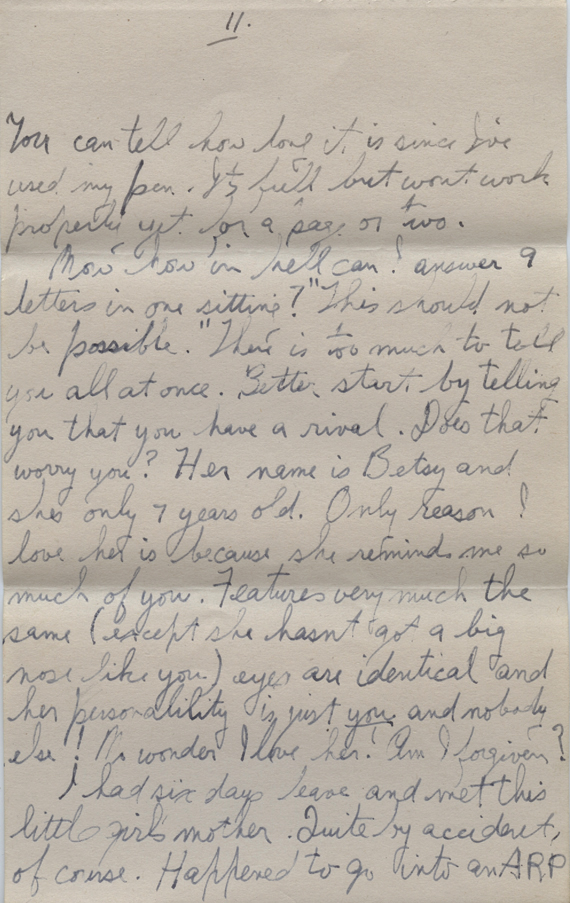 11.
You can tell how long it is since I've
used my pen. It's full but wont work
properly yet for a page or two.
Now how in hell can I answer 9
letters in one sitting? "This should not
be possible." There is too much to tell
you all at once. Better start by telling
you that you have a rival. Does that
worry you? Her name is Betsy and
shes only 7 years old. Only reason I
love her is because she reminds me so
much of you. Features very much the
same (except she hasnt got a big
nose like you) eyes are identical and
her personality is just you and nobody
else! No wonder I love her! Am I forgiven?
I had six days leave and met this
little girls mother. Quite by accident,
of course. Happened to go into an ARP